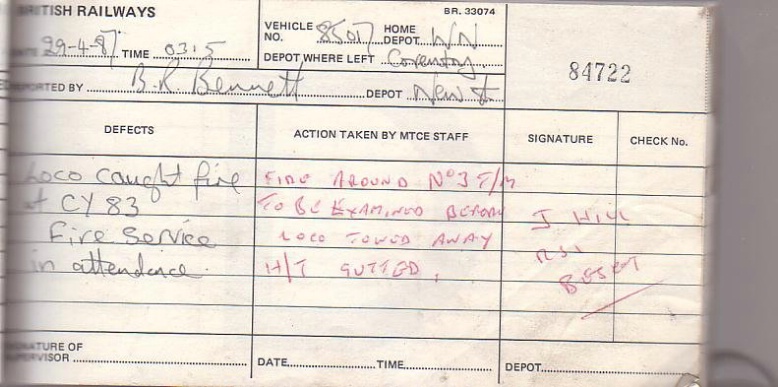 BRITISH RAILWAYS
BR. 33074
VEHICLE NO. 85017 HOME DEPOT WN
DATE 29-4-87 TIME 0315 DEPOT WHERE LEFT Coventry.
84722
REPORTED BY B.R. Bennett DEPOT New St
DEFECTS ACTION TAKEN BY MTCE STAFF SIGNATURE CHECK No.
Loco caught fire FIRE AROUND Nº3 T/M
at CY 83 TO BE EXAMINED BEFORE J HILL
Fire Service LOCO TOWED AWAY
in attendence. H/T GUTTED.
SIGNATURE OF
SUPERVISOR DATE TIME DEPOT